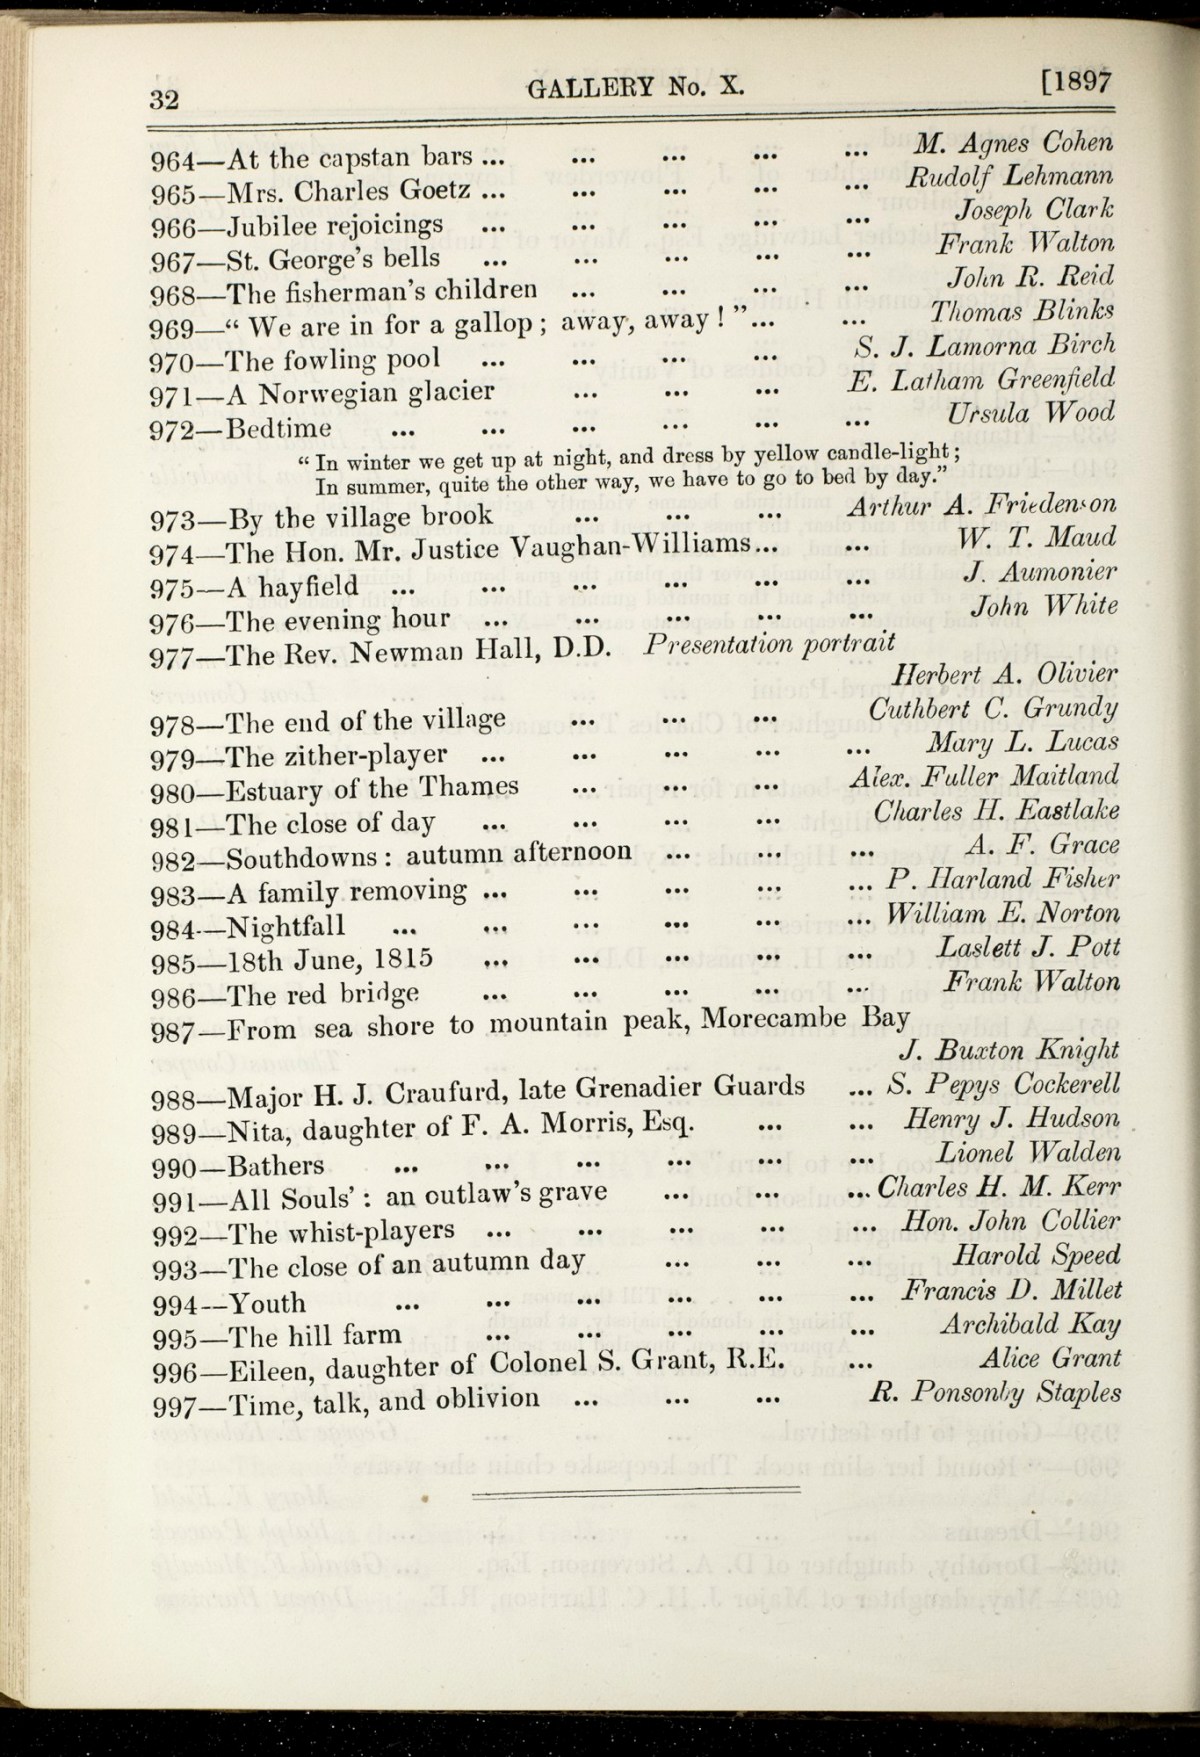 32 GALLERY No. X. [1897
964—At the capstan bars ... ... ... ... ... M. Agnes Cohen
965—Mrs. Charles Goetz ... ... ... ... ... Rudolf Lehmann
966—Jubilee rejoicings ... ... ... ... ... Joseph Clark
967—St. George's bells ... ... ... ... ... Frank Walton
968—The fisherman's children ... ... ... ... John R. Reid
969—“ We are in for a gallop ; away, away ! ”... ... Thomas Blinks
970—The fowling pool ... ... ... ... S. J. Lamorna Birch
971—A Norwegian glacier ... ... ... E. Latham Greenfield
972—Bedtime ... ... ... ... ... ... Ursula Wood
“ In winter we get up at night, and dress by yellow candle-light ;
In summer, quite the other way, we have to go to bed by day.”
973—By the village brook ... ... ... Arthur A. Friedenson
974—The Hon. Mr. Justice Vaughan-Williams... ... W. T. Maud
975—A hayfield ... ... ... ... ... ... J. Aumonier
976—The evening hour ... ... ... ... ... John White
977—The Rev. Newman Hall, D.D. Presentation portrait
Herbert A. Olivier
978—The end of the village ... ... ... Cuthbert C. Grundy
979—The zither-player ... ... ... ... ... Mary L. Lucas
980—Estuary of the Thames ... ... ... Alex. Fuller Maitland
981—The close of day ... ... ... ... Charles H. Eastlake
982—Southdowns : autumn afternoon ... ... ... A. F. Grace
983—A family removing ... ... ... ... ... P. Harland Fisher
984—Nightfall ... ... ... ... ... ... William E. Norton
985—18th June, 1815 ... ... ... ... ... Laslett J. Pott
986—The red bridge ... ... ... ... ... Frank Walton
987—From sea shore to mountain peak, Morecambe Bay
J. Buxton Knight
988—Major H. J. Craufurd, late Grenadier Guards ... S. Pepys Cockerell
989—Nita, daughter of F. A. Morris, Esq. ... ... Henry J. Hudson
990—Bathers ... ... ... ... ... ... Lionel Walden
991—All Souls' : an outlaw's grave ... ... ... Charles H. M. Kerr
992—The whist-players ... ... ... ... ... Hon. John Collier
993—The close of an autumn day ... ... ... Harold Speed
994—Youth ... ... ... ... ... ... Francis D. Millet
995—The hill farm ... ... ... ... ... Archibald Kay
996—Eileen, daughter of Colonel S. Grant, R.E. ... Alice Grant
997—Time, talk, and oblivion ... ... ... R. Ponsonby Staples